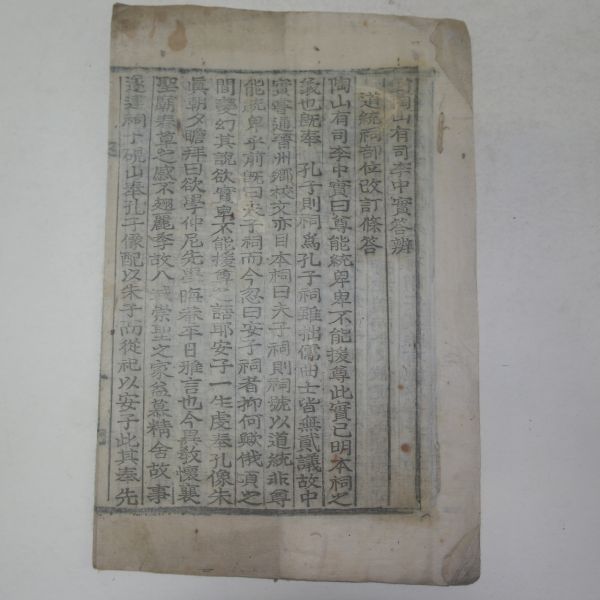 陶山有司李中實答辨
道統祠部位改訂條答
陶山有司李中實曰尊能統卑卑不能援尊此實已明本祠之
義也旣奉 孔子則祠爲孔子祠雖拙儒曲士皆無貳議故中
實尊通晋州鄕校文亦曰本祠曰夫子祠則祠號以道統非尊
能統卑乎前旣曰夫子祠而今忽曰安子祠者抑何歟俄頃之
間變幻其說欲實卑不能援尊之語耶安子一生虔奉孔像朱
眞朝夕瞻拜曰欲學仲尼先學晦菴平日雅言也今異敎懷襄
聖廟奉草之感不翅麗季故八 崇聖之家益慕精舍故事
遂建祠于硯山奉孔子像配以朱子而從祀以安子此其奉先